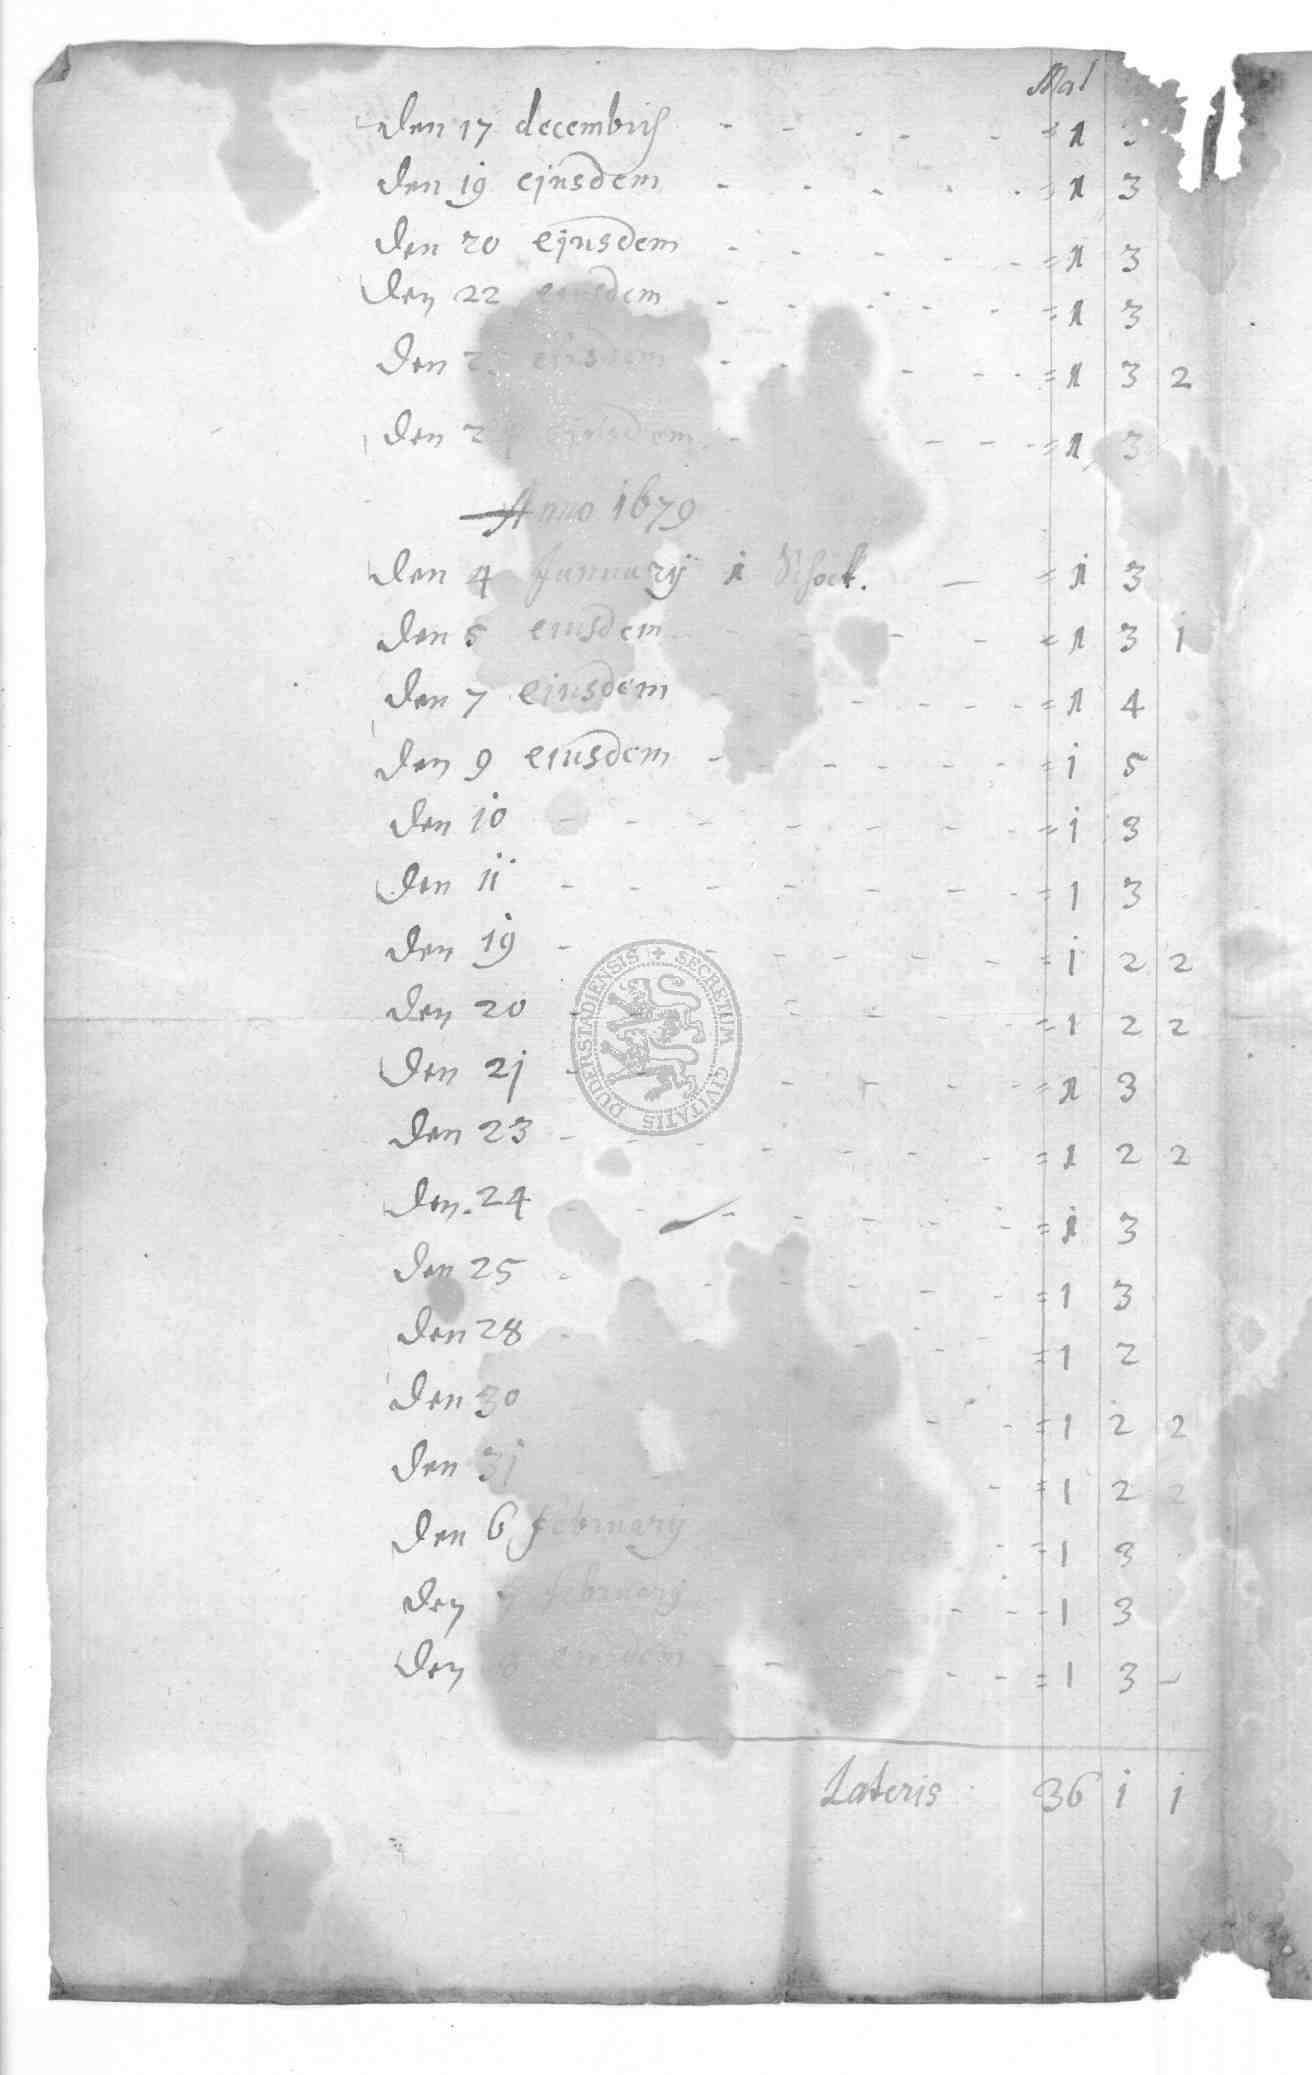 Mal
den 17 decembris - - - - - = 1
den 19 ejusdem - - - - - = 1 3
den 20 ejusdem - - - - - = 1 3
den 22 eiusdem - - - - - = 1 3
den eiusdem - - - - - = 1 3 2
den ejusdem - - - - = 1 3
Anno 1679
den 4 January 1 Schock. — = 1 3
den 5 eiusdem - - - - = 1 3 1
den 7 ejusdem - - - - - = 1 4
den 9 eiusdem - - - - - = 1 5
den 10 - - - - - - = 1 3
den 11 - - - - - - = 1 3
den 19 - - - - - - = 1 2 2
den 20 - - - - - - = 1 2 2
den 21 - - - - - - = 1 3
den 23 - - - - - - = 1 2 2
den. 24 - - - - - - = 1 3
den 25 - - - - - - = 1 3
den 28 - - - = 1 2
den 30 - - = 1 2 2
den 31 - = 1 2 2
den 6 february - = 1 3
den february - - - 1 3
den eiusdem - - - - = 1 3 -
Lateris 36 1 1
SECRETUM CIVITATIS DUDERSTADIENSIS